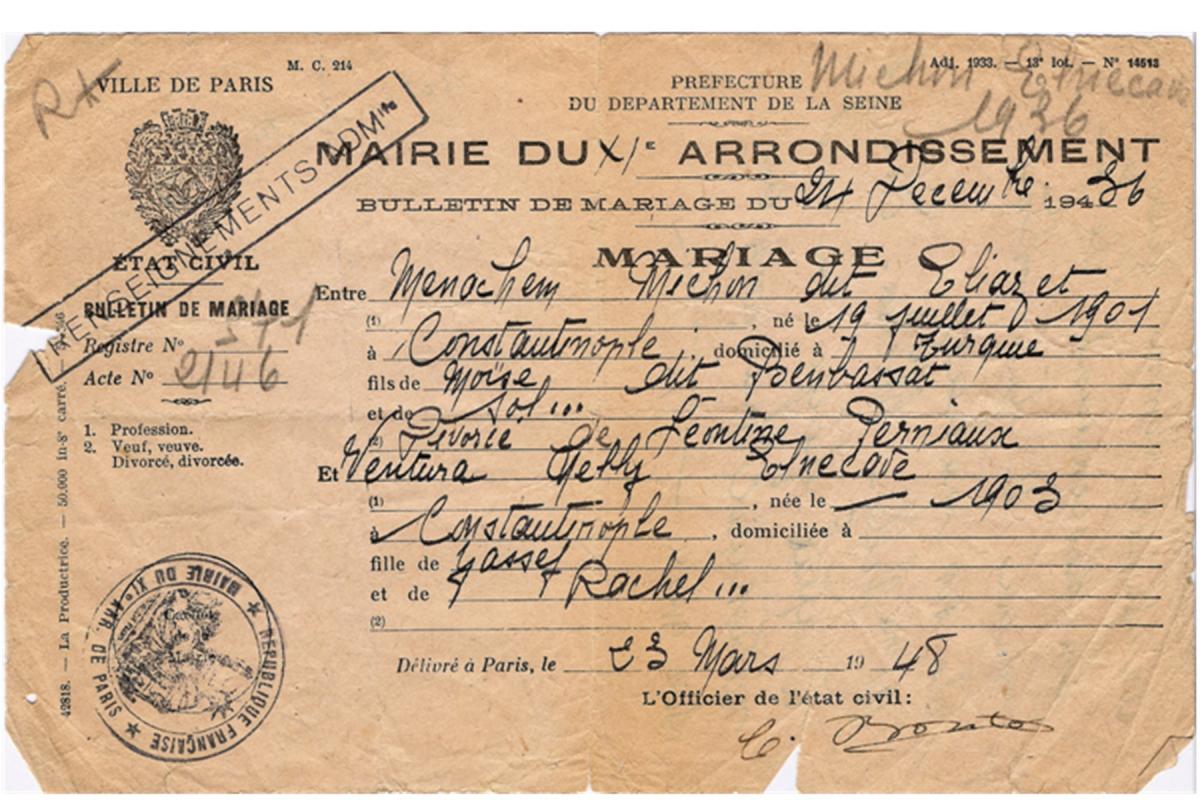 M. C. 214
Adj. 1933. — 13e lot. — N° 14513
R
VILLE DE PARIS
PREFECTURE
DU DEPARTEMENT DE LA SEINE
Michon Elnecave
1936
MAIRIE DU XIe ARRONDISSEMENT
BULLETIN DE MARIAGE DU 24 Decembre 1936
RENSEIGNEMENTS ADMifs
ÉTAT CIVIL
BULLETIN DE MARIAGE
Registre N°
Acte N° 2146
1. Profession.
2. Veuf, veuve.
Divorcé, divorcée.
MARIAGE
Entre Menachem Michon dit Eliaz et
(1) , né le 19 juillet 1901
à Constantinople , domicilié à Turquie
fils de Moïse dit Benbassat
et de Sol...
(2) Divorcé de Léontine Perniaux
Et Ventura Nelly Elnecave
(1) , née le — 1903
à Constantinople , domiciliée à
fille de Yassef
et de Rachel...
(2)
Délivré à Paris, le 23 Mars 1948
L'Officier de l'état civil:
42818. — La Productrice. — 50.000 in-8° carré.
★ RÉPUBLIQUE FRANÇAISE ★ MAIRIE DU XIe ARR. DE PARIS